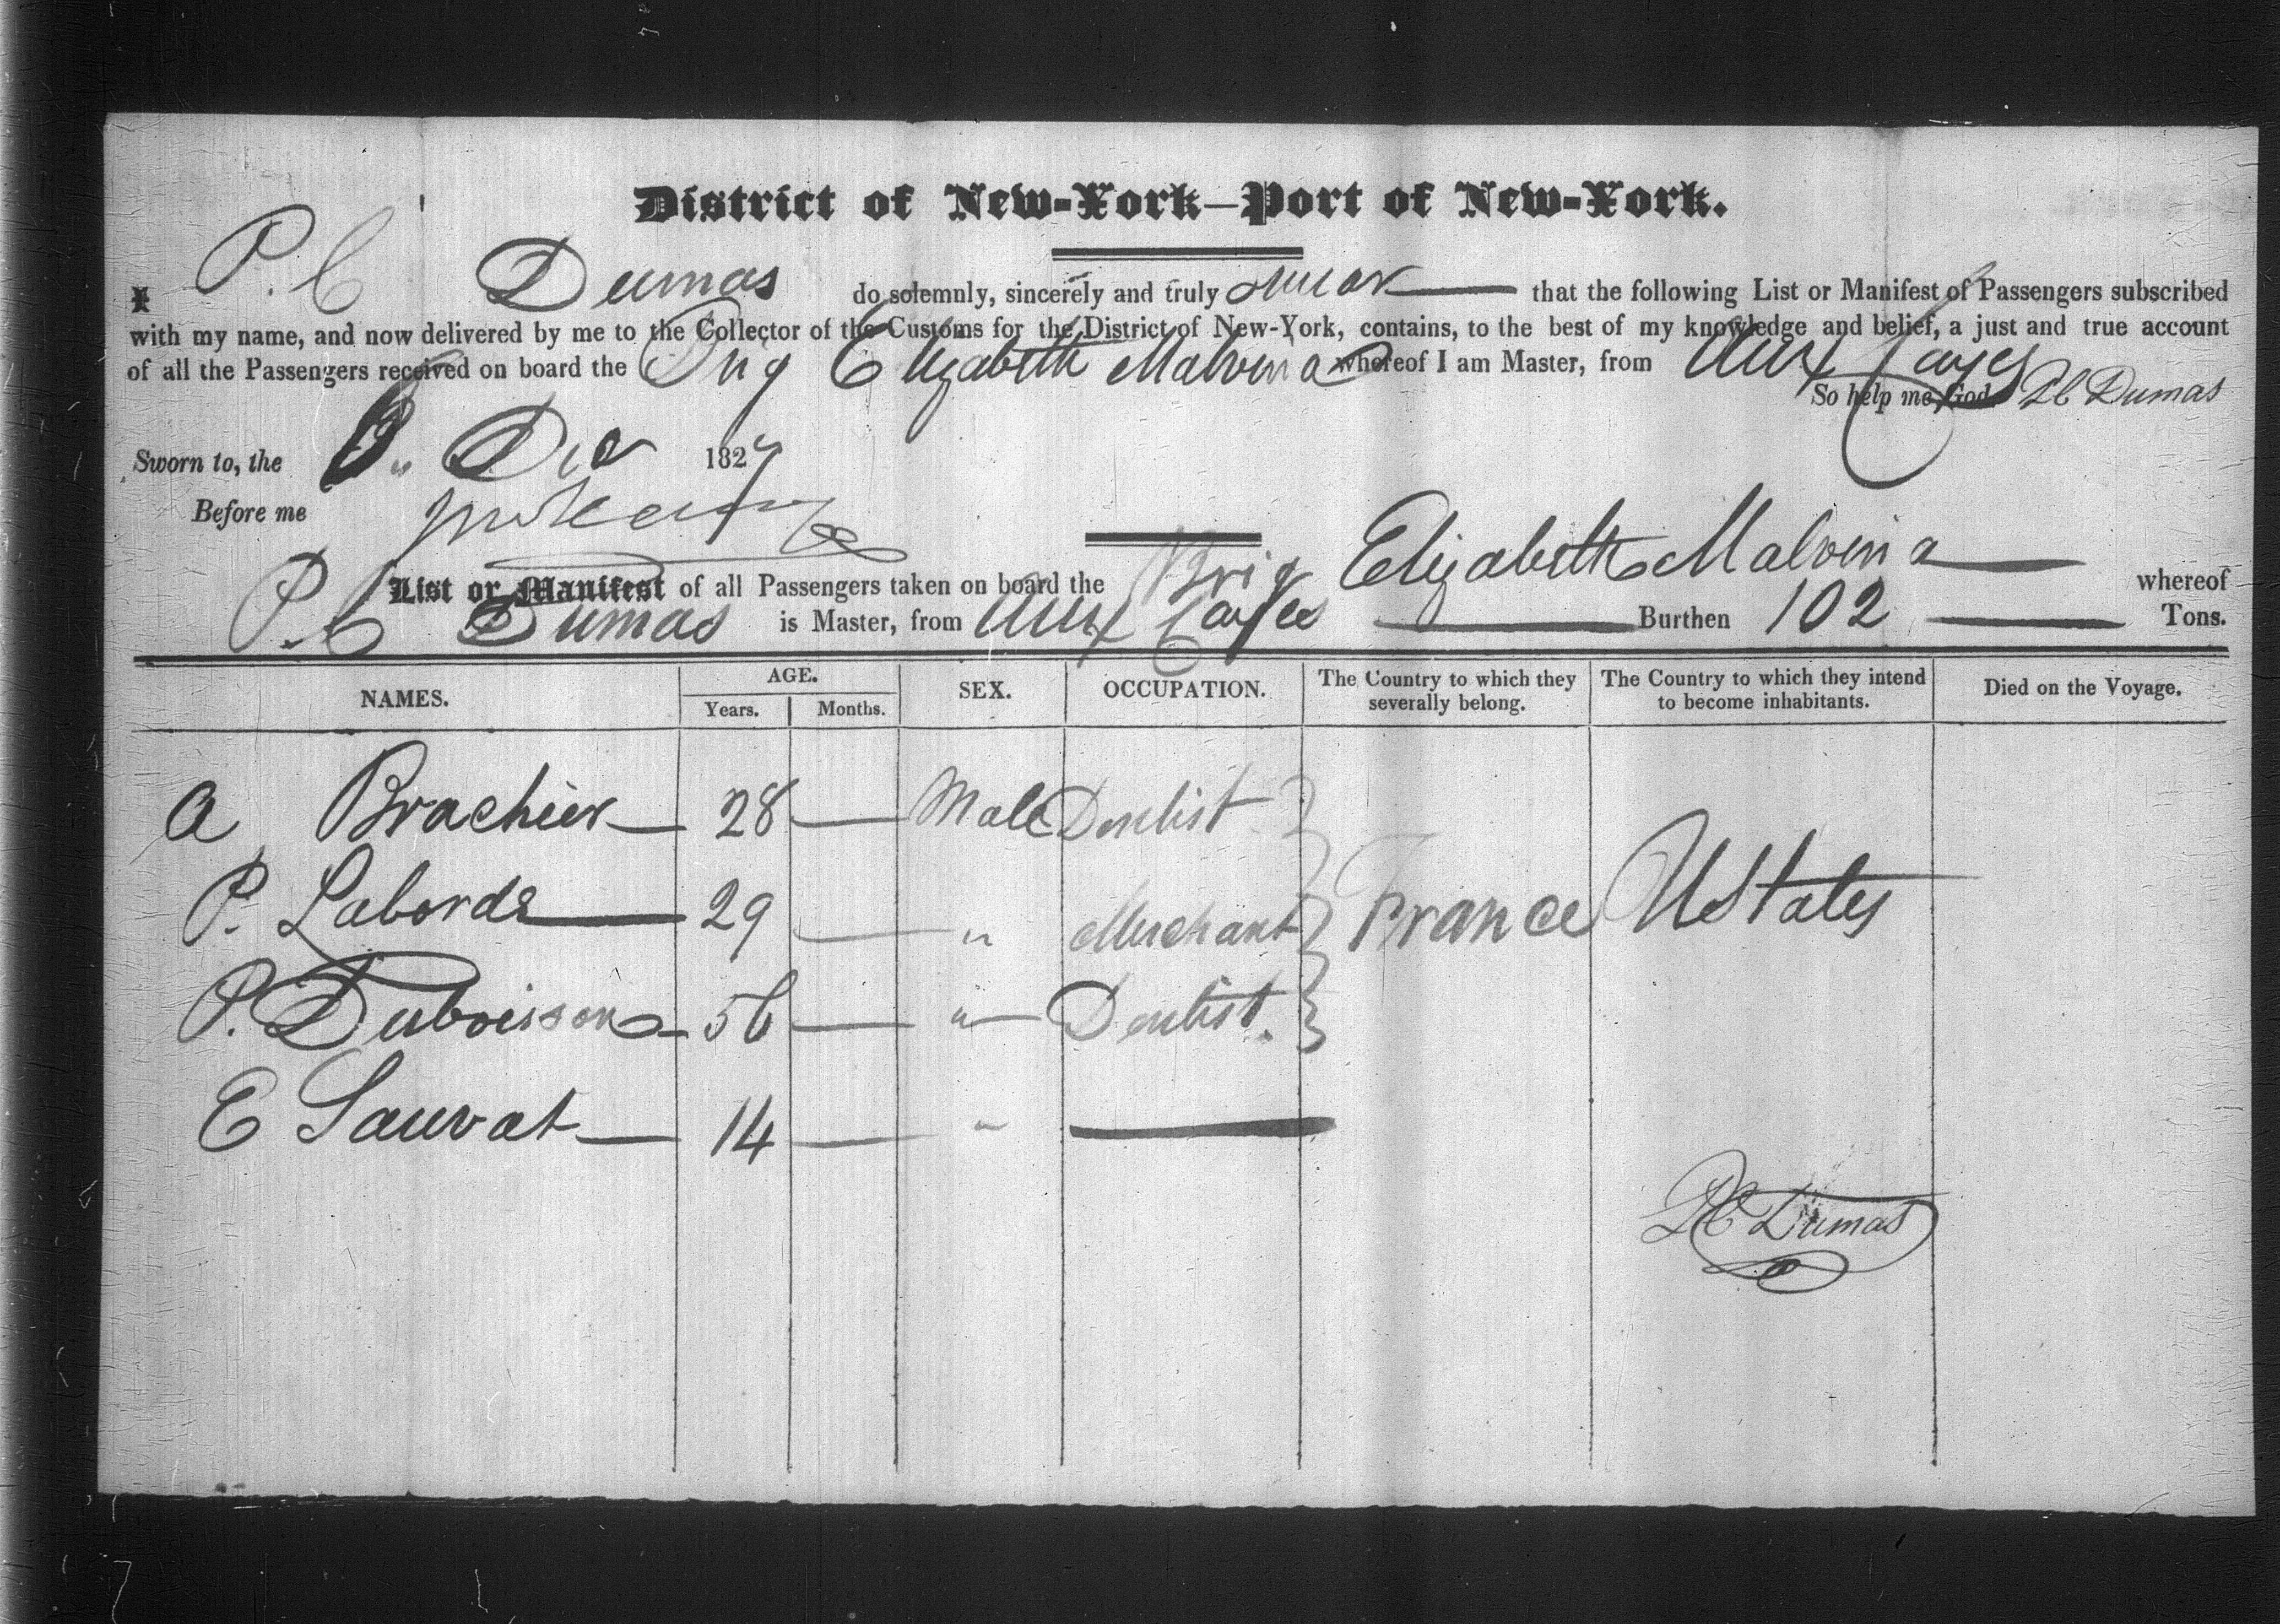 District of New-York—Port of New-York.
I P. C Dumas do solemnly, sincerely and truly swear that the following List or Manifest of Passengers subscribed
with my name, and now delivered by me to the Collector of the Customs for the District of New-York, contains, to the best of my knowledge and belief, a just and true account
of all the Passengers received on board the Brig Elizabeth Malvina whereof I am Master, from Aux Cayes
So help me God. P C Dumas
Sworn to, the Dec 1827
Before me
List or Manifest of all Passengers taken on board the Brig Elizabeth Malvina whereof
P. C Dumas is Master, from Aux Cayes Burthen 102 Tons.
NAMES. AGE. Years. Months. SEX. OCCUPATION. The Country to which they severally belong. The Country to which they intend to become inhabitants. Died on the Voyage.
A Brachier 28 Male Dentist
P. Laborde 29 " Merchant France UStates
P. Duboisson 56 " Dentist.
E Sauvat 14 "
P C Dumas